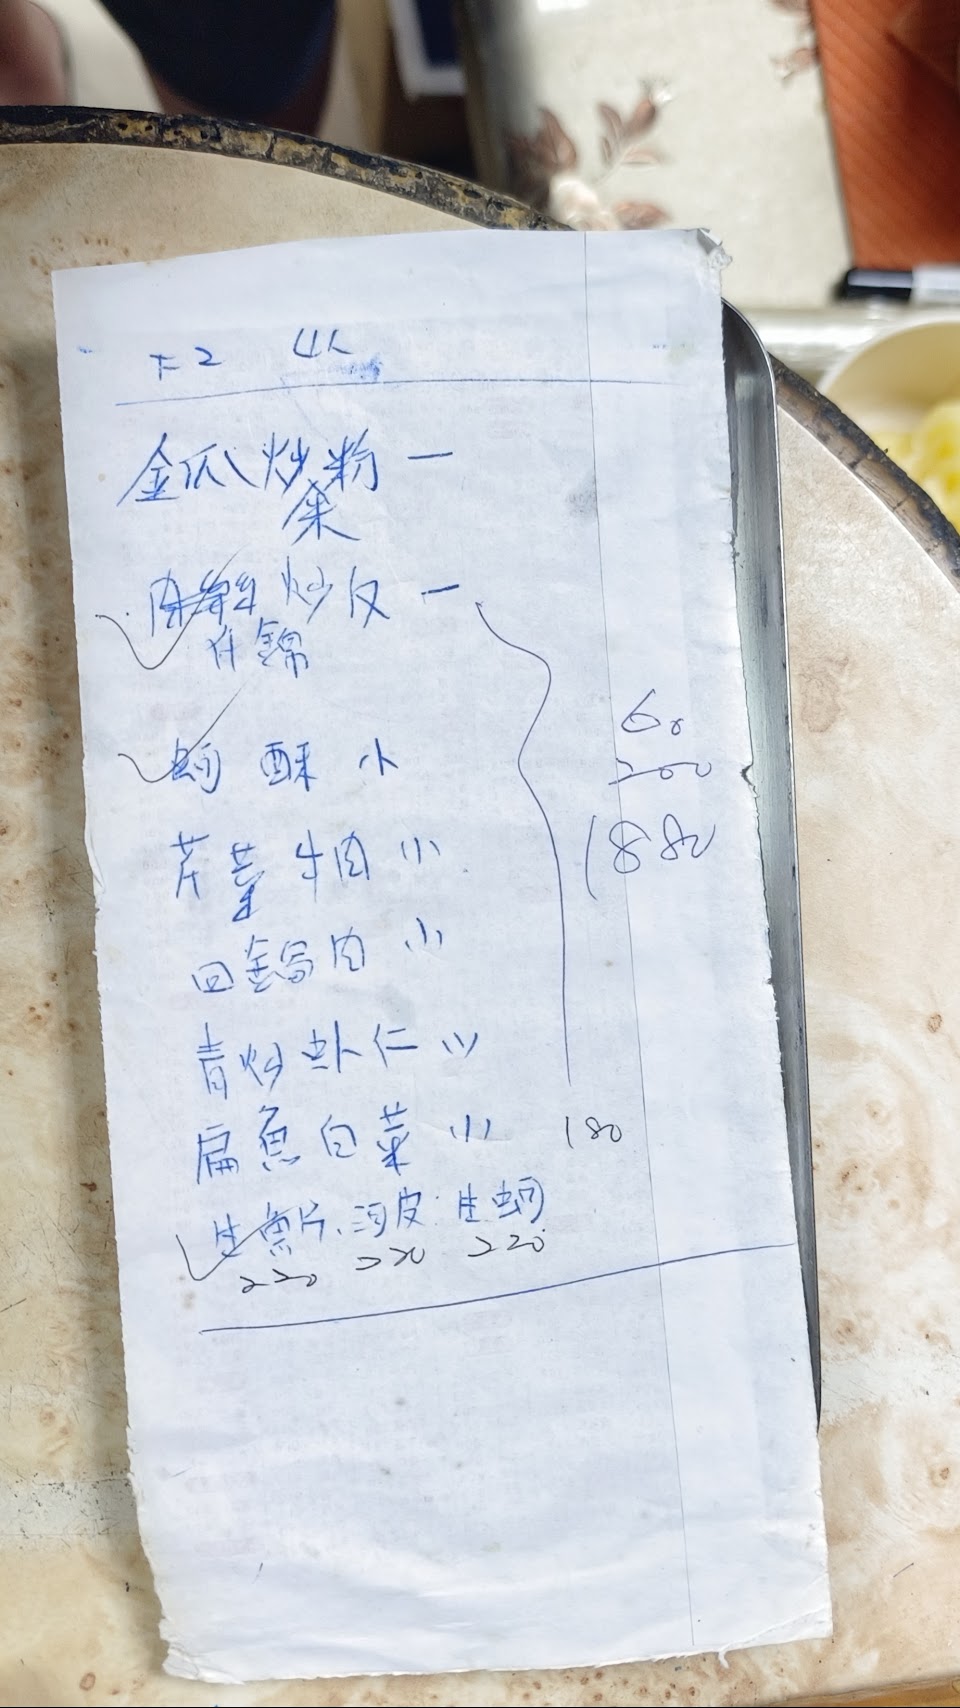 F2 4人
金瓜炒粉 一
菜
肉絲炒皮 一
什錦
蚵酥 小
芹菜牛肉 小
回鍋肉 小
青炒虾仁 小
扁魚白菜 小 180
生魚片、河皮、生蚵
220 220 220
60
200
1880